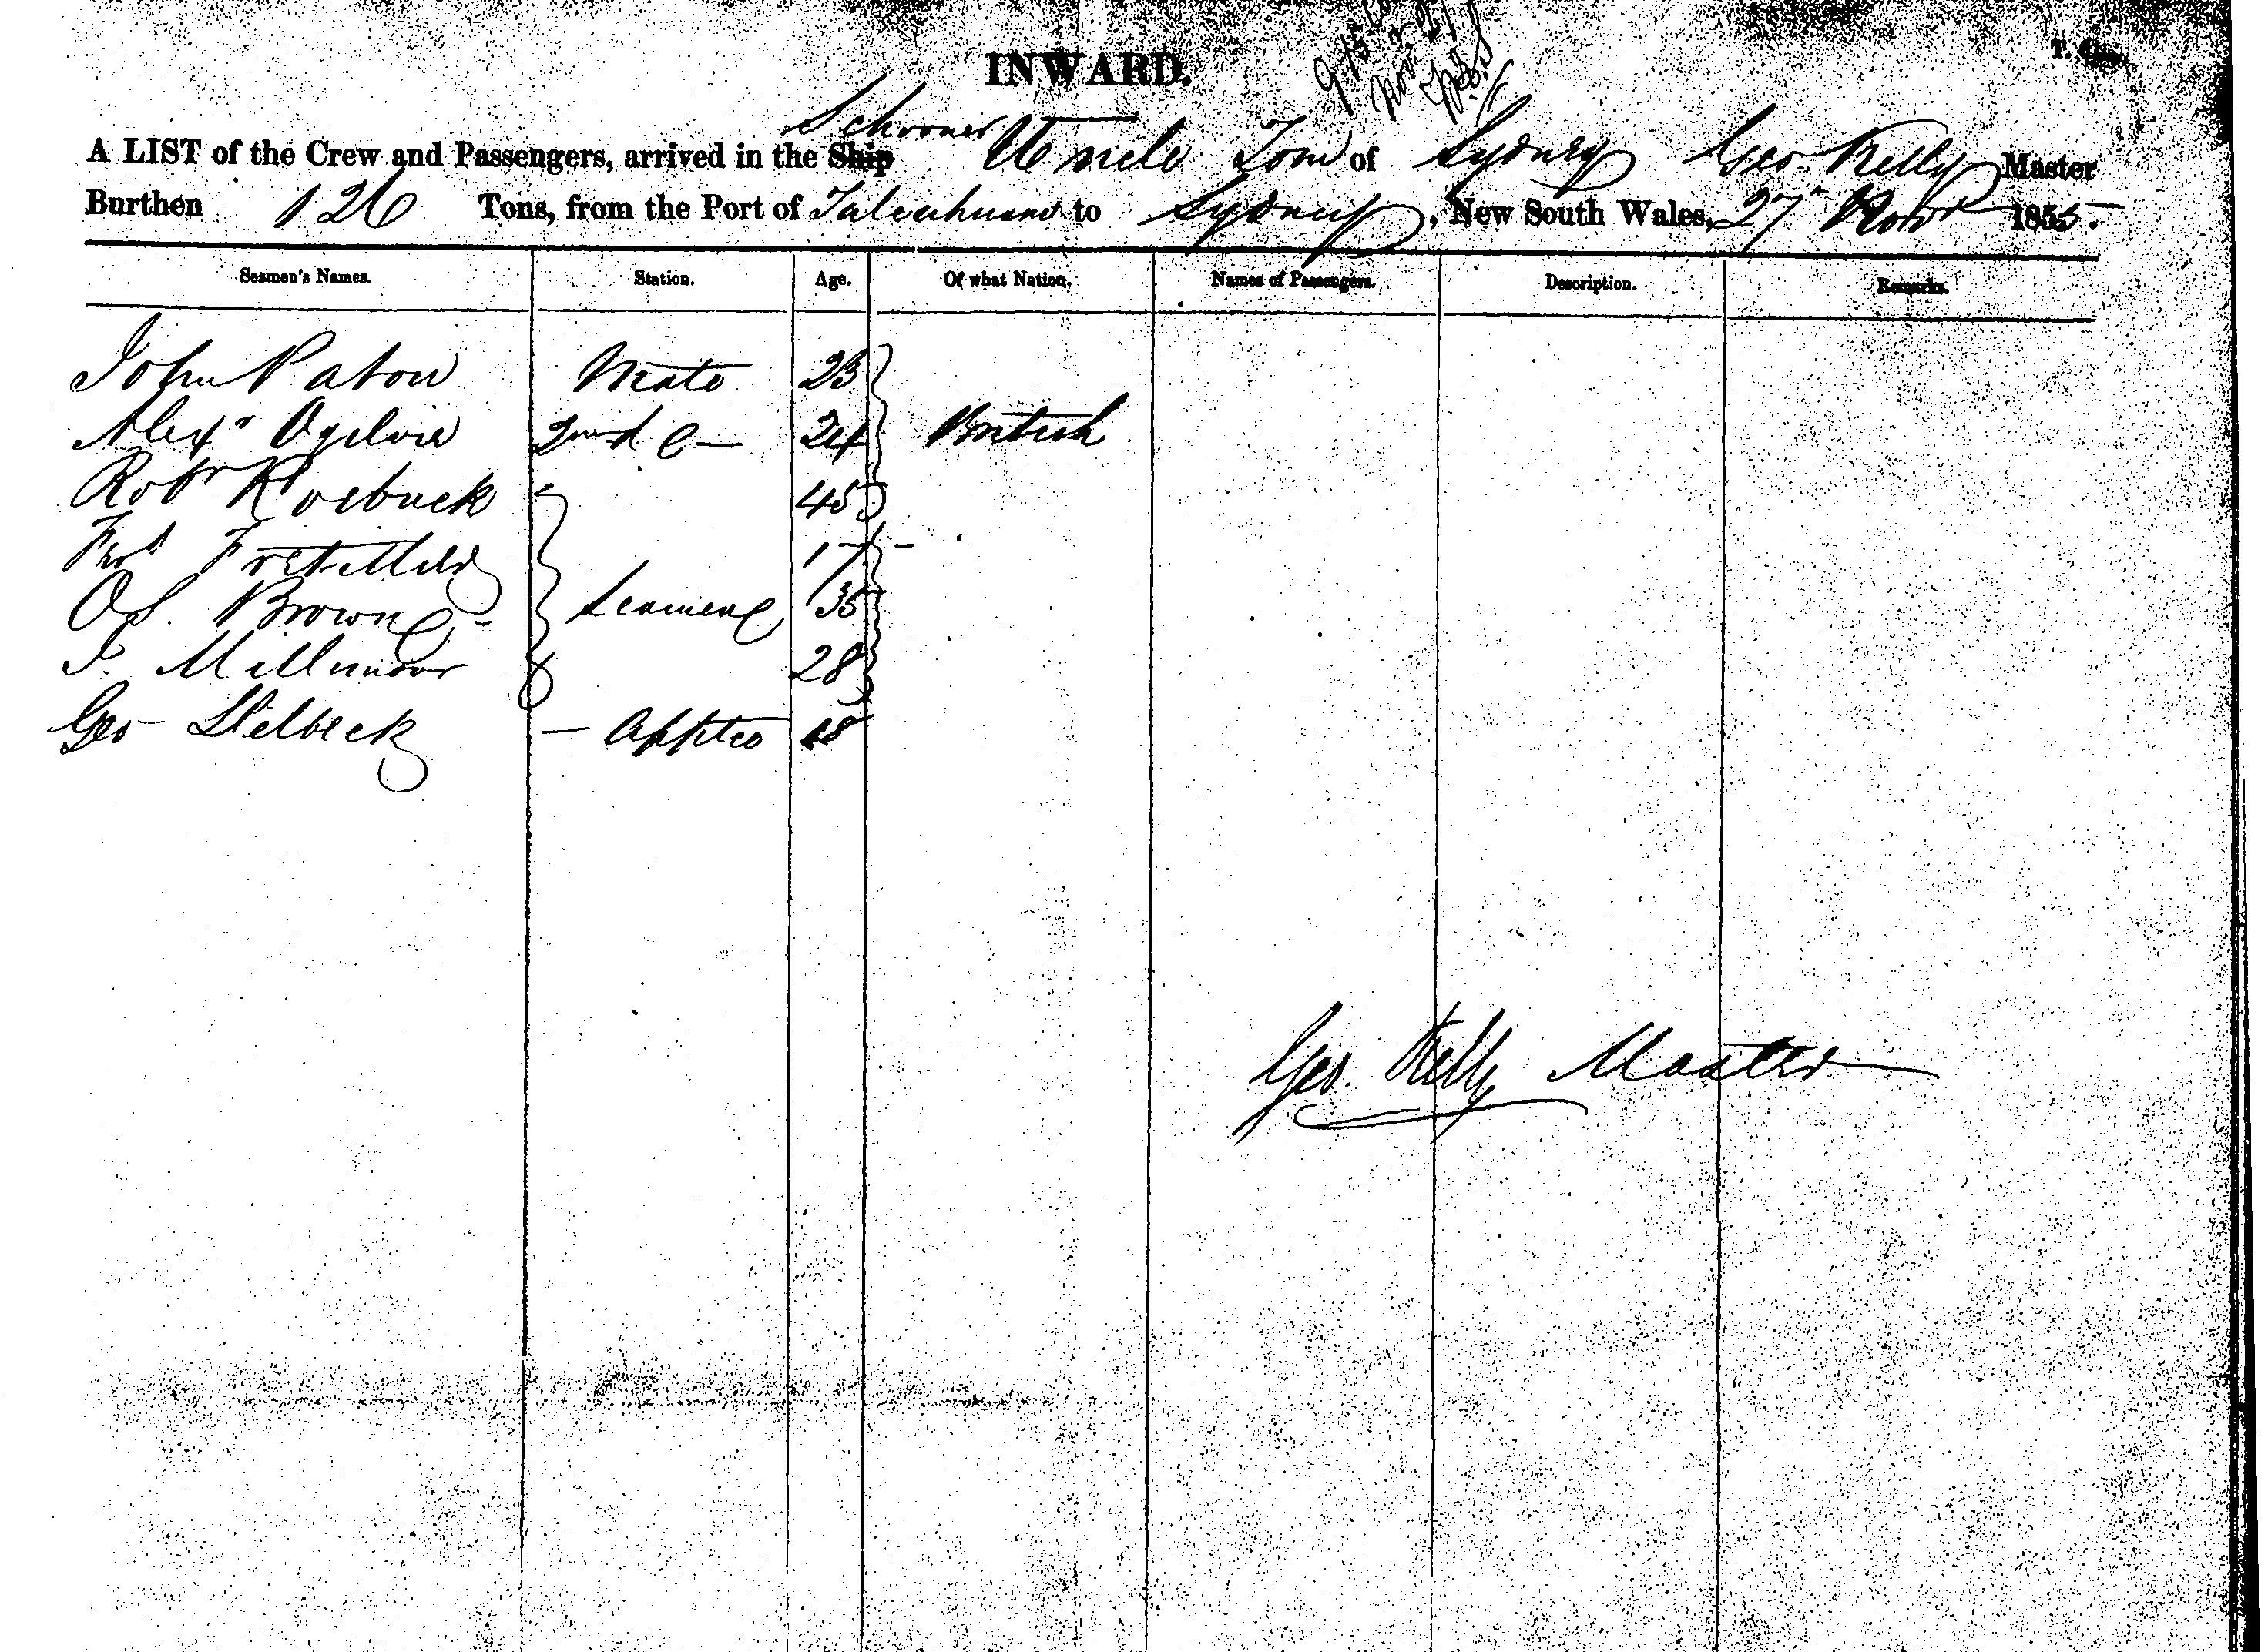 INWARD.
Schooner
A LIST of the Crew and Passengers, arrived in the Ship Uncle Tom of Sydney Geo Kelly Master
Burthen 126 Tons, from the Port of Talcahuano to Sydney, New South Wales, 27th Novr 1855.
Seamen's Names. Station. Age. Of what Nation. Names of Passengers. Description. Remarks.
John Paton Mate 23
Alexr Ogilvie 2nd 24 British
Robt Roebuck 45
17
O S. Brown Seamen 35
28
Geo 18
Geo. Kelly Master